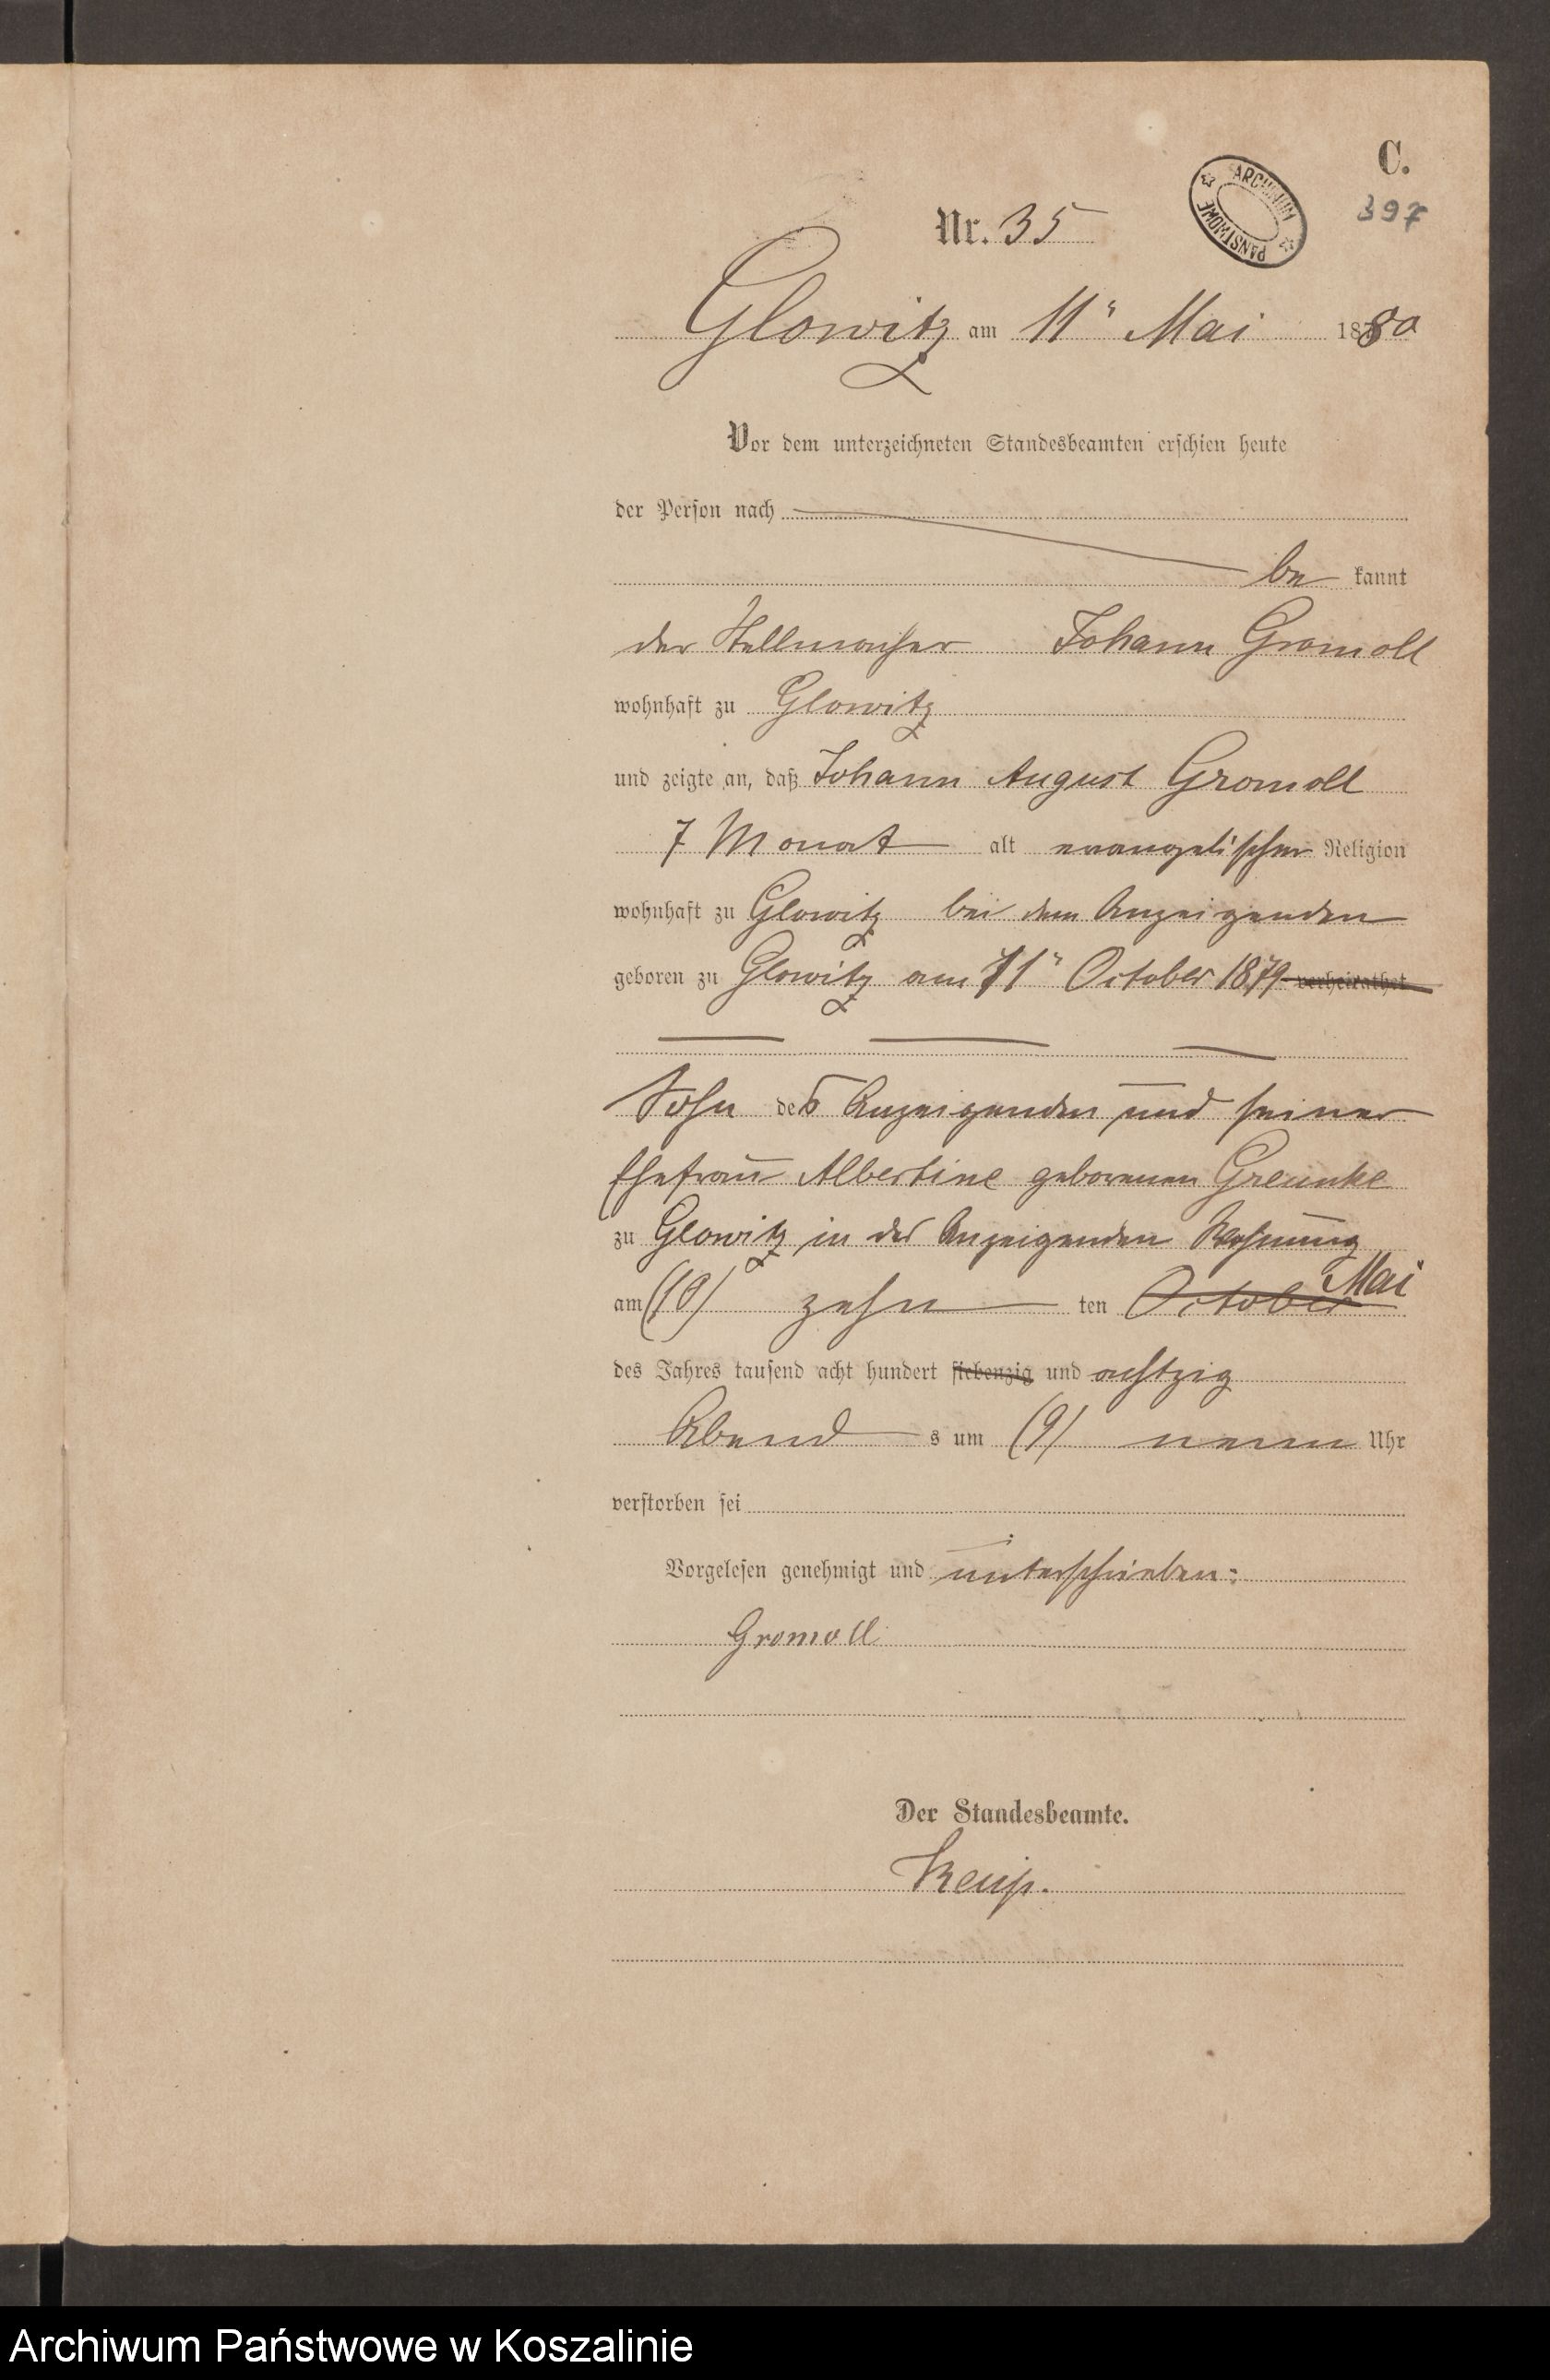 C.
397
ARCHIWUM PAŃSTWOWE
Nr. 35
Glowitz am 11" Mai 1880
Vor dem unterzeichneten Standesbeamten erschien heute
der Person nach
be kannt
der Stellmacher Johann Gromoll
wohnhaft zu Glowitz
und zeigte an, daß Johann August Gromoll
7 Monat alt evangelischer Religion
wohnhaft zu Glowitz bei dem Anzeigenden
geboren zu Glowitz am 11" October 1879 verheirathet
Sohn des Anzeigenden und seiner
Ehefrau Albertine geborenen
zu Glowitz in des Anzeigenden Wohnung
am (10) zehn ten October Mai
des Jahres tausend acht hundert siebenzig und achtzig
Abend s um (9) neun Uhr
verstorben sei
Vorgelesen genehmigt und unterschrieben:
Gromoll
Der Standesbeamte.
Archiwum Państwowe w Koszalinie